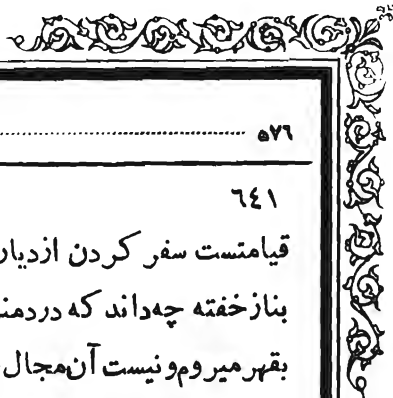 ٥٧٦
٦٤١
قیامتست سفر کردن ازدیار
بناز خفته چه‌داند که دردمند
بقهر میروم‌و نیست آن‌مجال